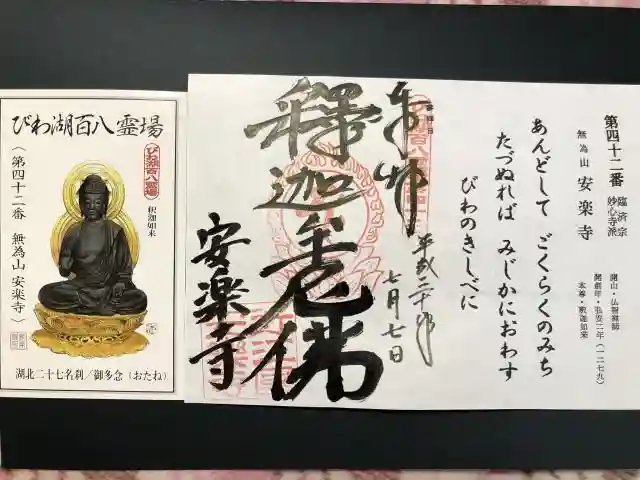 びわ湖百八霊場
びわ湖百八霊場
釈迦如来
(第四十二番 無為山 安楽寺)
湖北二十七名刹/御多念(おたね)
第四十二番 臨済宗妙心寺派
無為山 安楽寺
開山・仏智禅師
開創年・弘安二年(一二七九)
本尊・釈迦如来
あんどして ごくらくのみち
たづぬれば みじかにおわす
びわのきしべに
奉拝
平成二十年
七月七日
釋迦牟尼佛
安楽寺